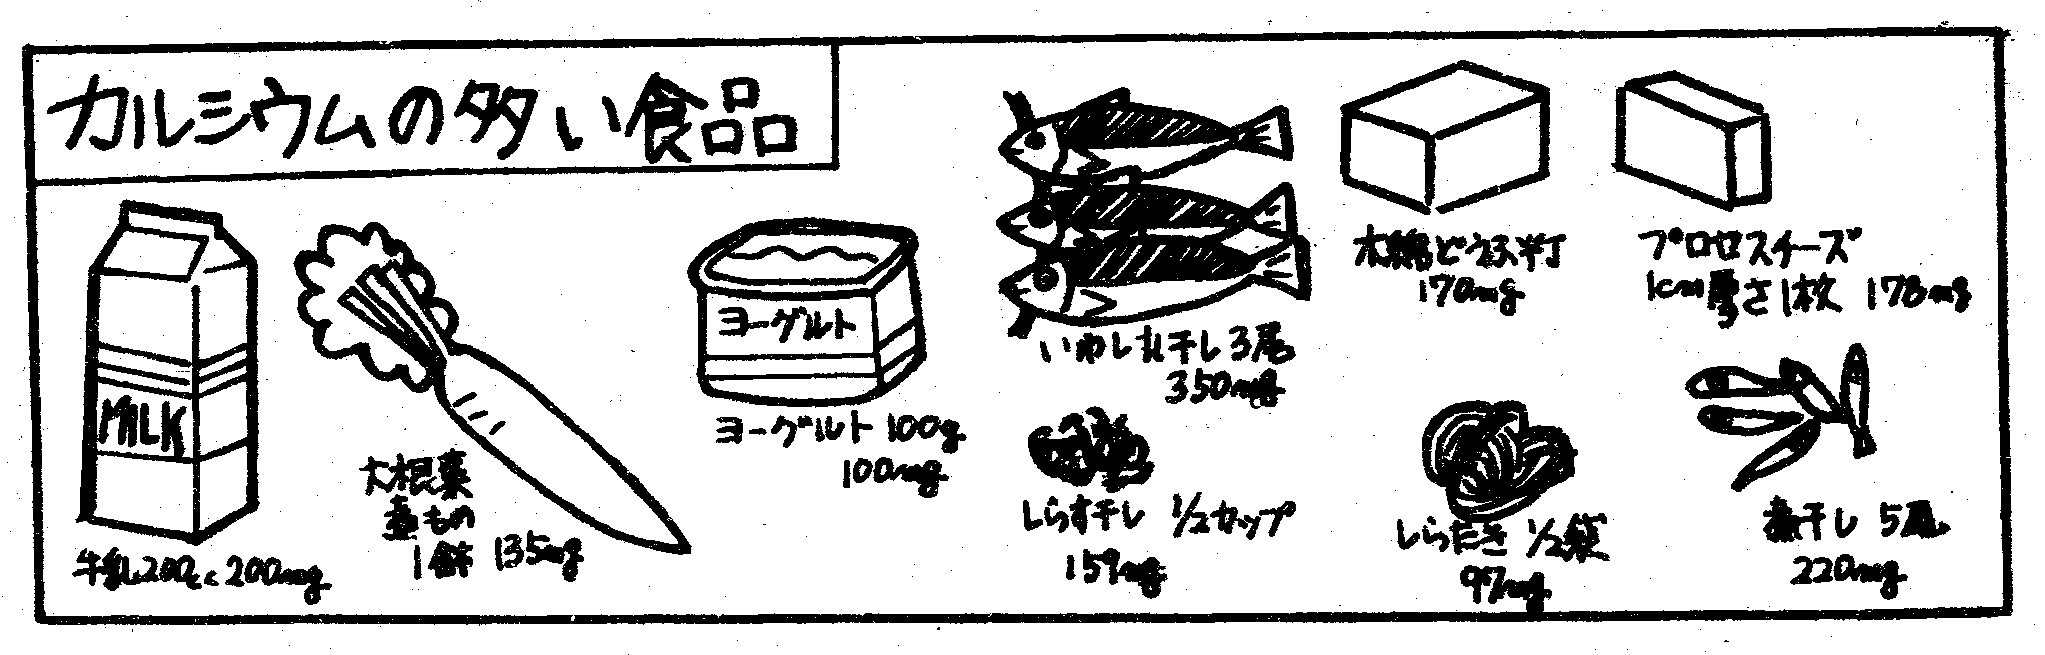 カルシウムの多い食品
MILK
牛乳200cc 200mg
大根葉
煮もの
1鉢 135mg
ヨーグルト
ヨーグルト 100g
100mg
いわし丸干し3尾
350mg
しらす干し 1/2カップ
159mg
木綿どうふ半丁
170mg
プロセスチーズ
1cm厚さ1枚 178mg
しらたき 1/2袋
97mg
煮干し 5尾
220mg